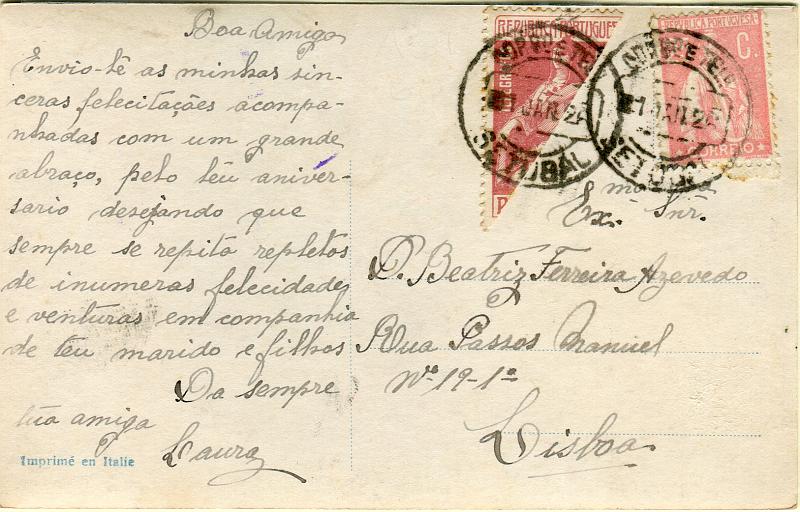 Boa Amiga
Envio-tê as minhas sin-
ceras felecitações acompa-
nhadas com um grande
abraço, pelo têu aniver-
sario desejando que
sempre se repita repletos
de inumeras felecidades
e venturas em companhia
de teu marido e filhos
Da sempre
tua amiga
Laura
Imprimé en Italie
REPUBLICA PORTUGUE
JAN
SETUBAL
REPUBLICA PORTUGUESA
C.
CORREIO
JAN
Ex.ma Snr.a
D. Beatriz Ferreira Azevedo
Rua Passos Manuel
Nº 19-1º
Lisboa